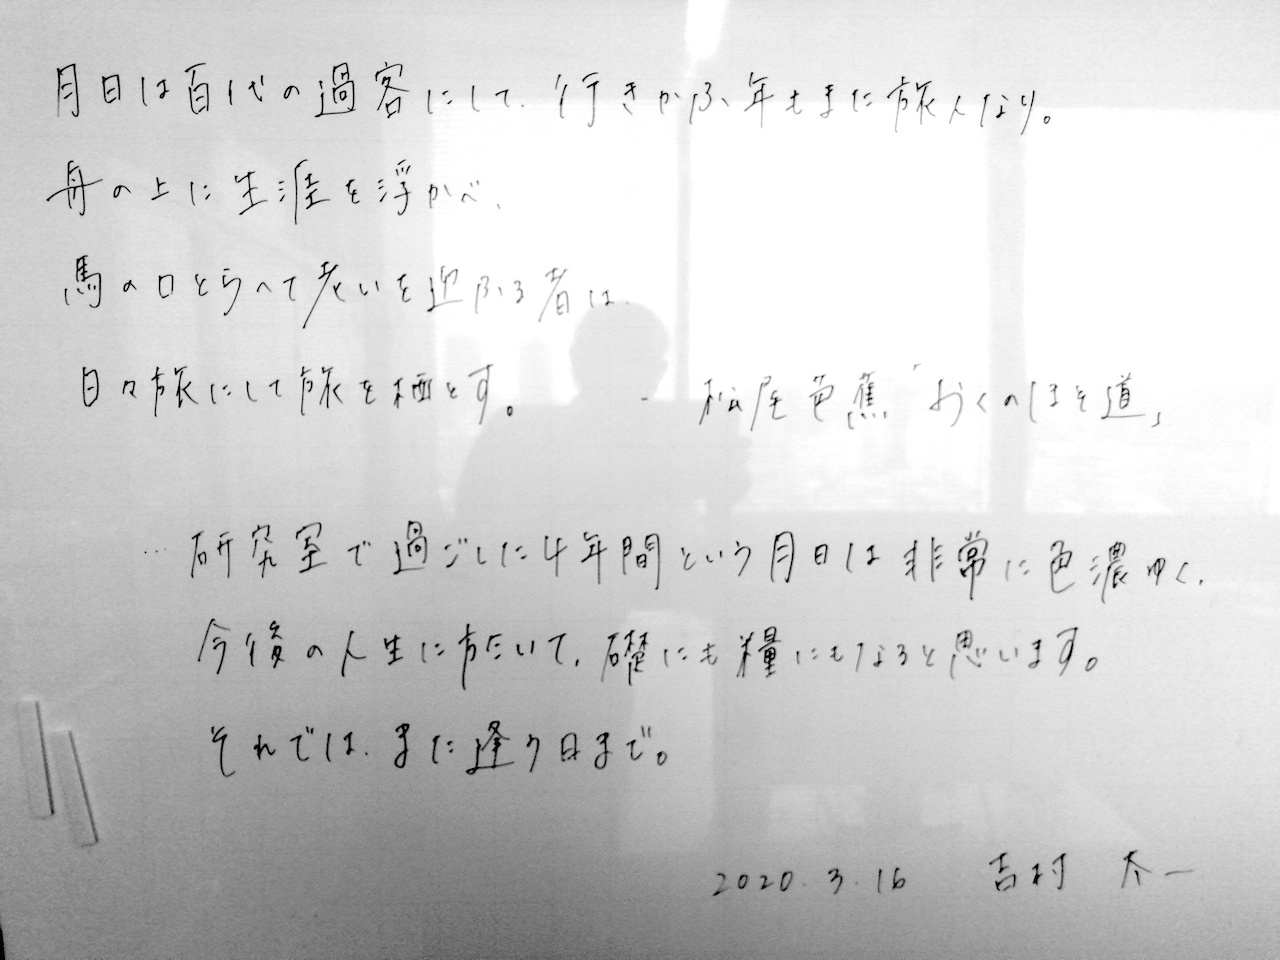 月日は百代の過客にして、行きかふ年もまた旅人なり。
舟の上に生涯を浮かべ、
馬の口とらへて老いを迎ふる者は、
日々旅にして旅を栖とす。 - 松尾芭蕉「おくのほそ道」
…研究室で過ごした4年間という月日は非常に色濃ゆく、
今後の人生に於いて、礎にも糧にもなると思います。
それでは、また逢う日まで。
2020.3.16 吉村 太一